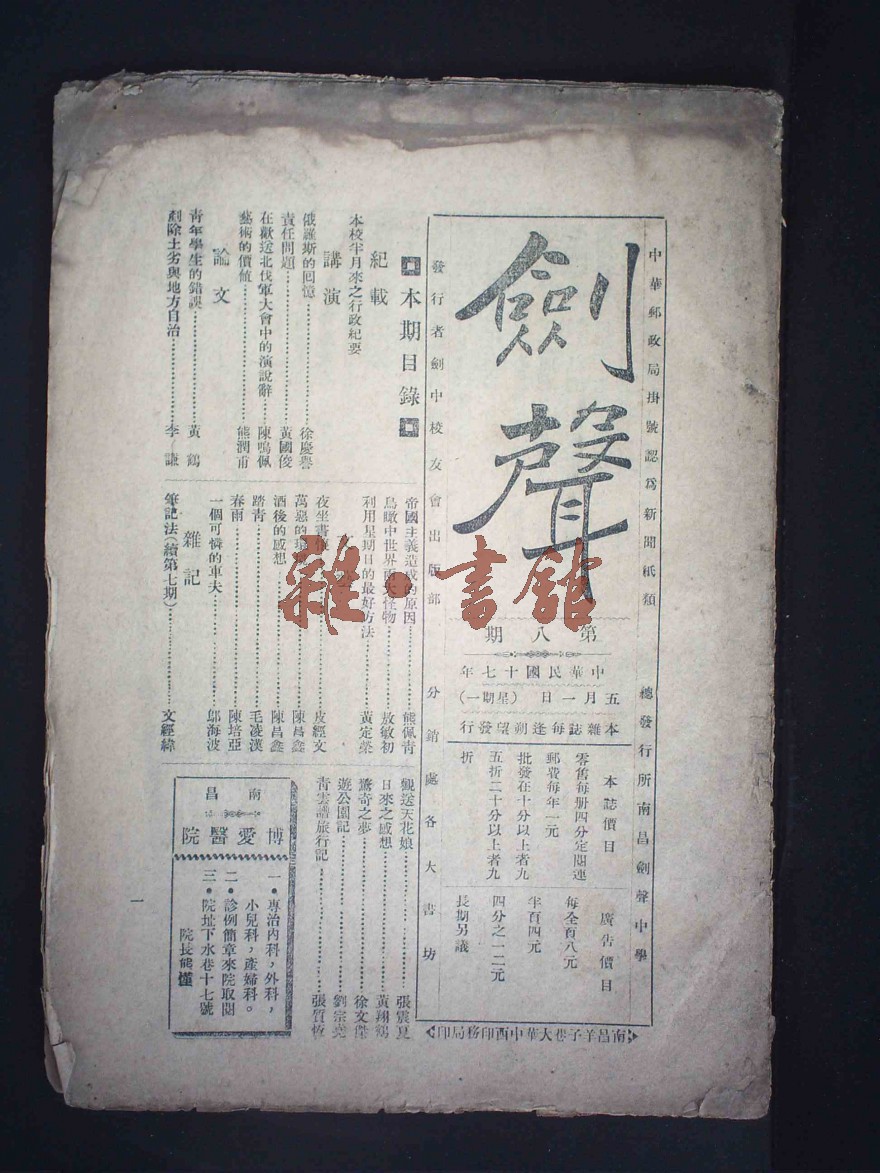 中華郵政局掛號認爲新聞紙類
總發行所南昌劍聲中學
劍聲
第八期
中華民國十七年
五月一日(星期一)
本雜誌每逢朔望發行
本誌價目
零售每册四分定閱連
郵費每年一元
批發在十分以上者九
五折二十分以上者九
折
廣告價目
每全頁八元
半頁四元
四分之一二元
長期另議
發行者劍中校友會出版部
分銷處各大書坊
南昌羊子巷大華中西印務局印
本期目錄
紀載
本校半月來之行政紀要
講演
俄羅斯的回憶……徐慶譽
責任問題……黃國俊
在歡送北伐軍大會中的演說辭……陳鳴佩
藝術的價値……熊潤甫
論文
靑年學生的錯誤……黃鶴
剷除土劣與地方自治……李謙
帝國主義造成的原因……熊佩靑
鳥瞰中世界兩大怪物……敖敏初
利用星期日的最好方法……黃定榮
夜坐書……皮經文
萬惡的……陳昌鑫
酒後的感想……陳昌鑫
踏靑……毛凌漢
春雨……陳培亞
一個可憐的車夫……鄔海波
雜記
筆記法(續第七期)……文經緯
觀送天花娘……張震夏
日來之感想……黃翔鶴
驚奇之夢……徐文傑
遊公園記……劉宗堯
靑雲譜旅行記……張質恆
南昌
博愛醫院
一●專治內科,外科,
小兒科,產婦科。
二●診例簡章來院取閱
三●院址下水巷十七號
院長熊懂
一
雜·書館